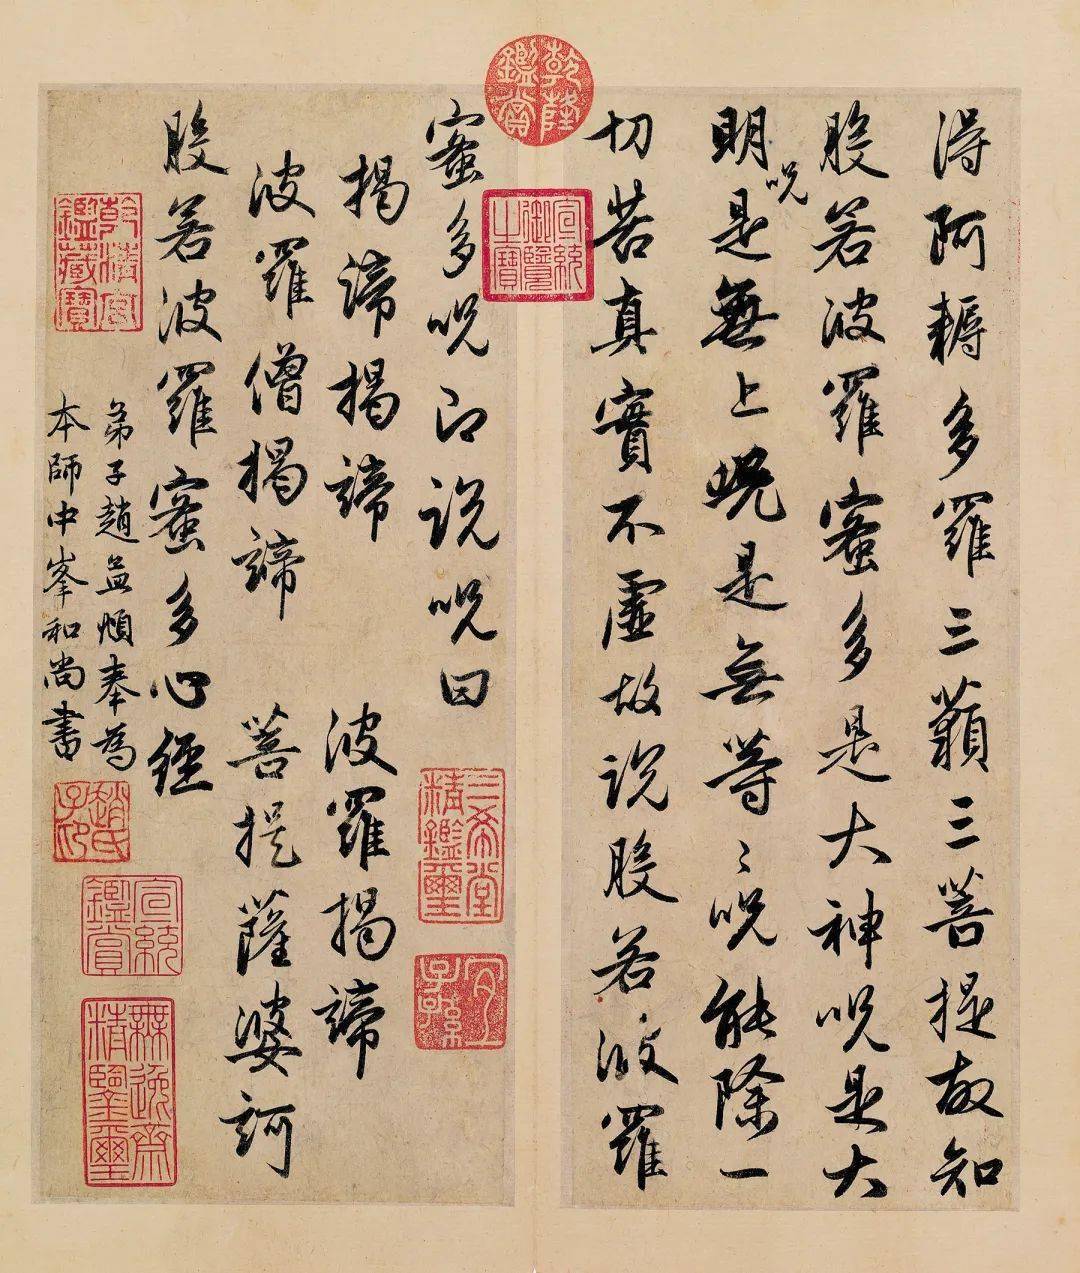 得阿耨多羅三藐三菩提故知
般若波羅蜜多是大神呪是大
明呪是無上呪是無等〻呪能除一
切苦真實不虛故說般若波羅
蜜多呪即說呪曰
揭諦揭諦 波羅揭諦
波羅僧揭諦 菩提薩婆訶
般若波羅蜜多心經
弟子趙孟頫奉為
本師中峯和尚書
乾隆鑑賞
宣統御覽之寶
三希堂精鑑璽
宜子孫
乾清宮鑑藏寶
趙氏子印
宣統鑑賞
無逸齋精鑒璽